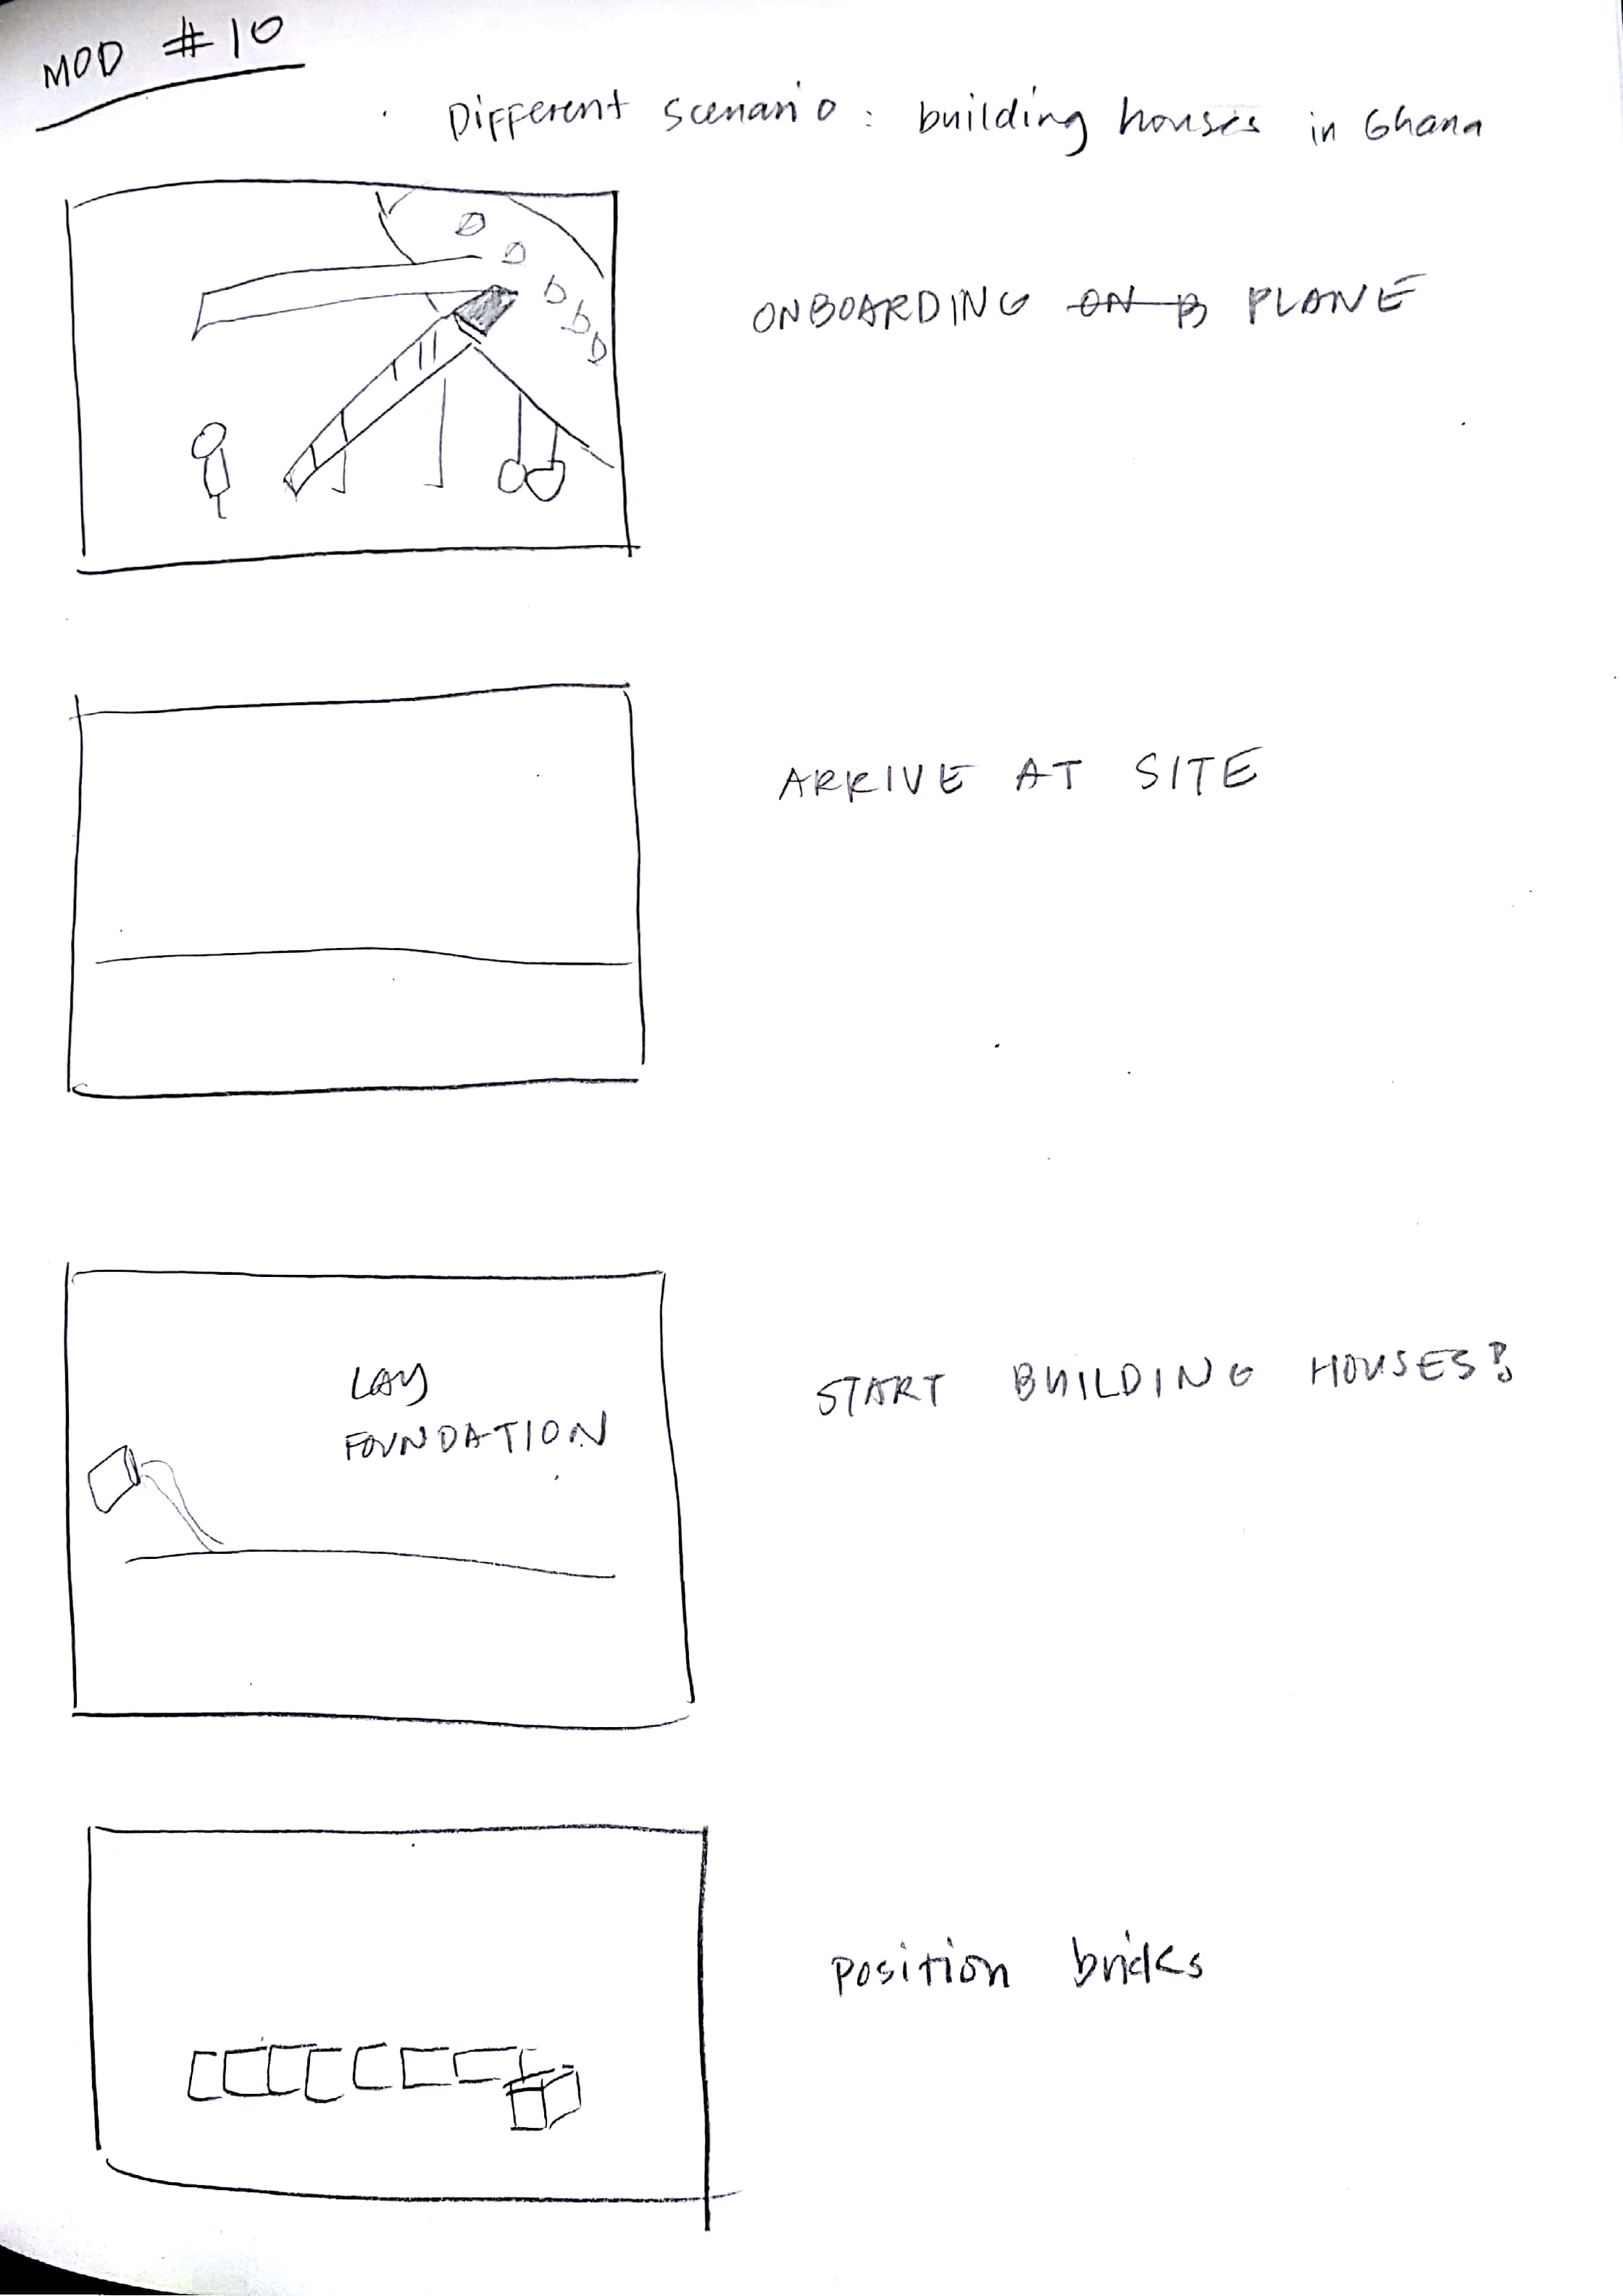 MOD #10
Different scenario: building houses in Ghana
ONBOARDING ON B PLANE
ARRIVE AT SITE
LAY
FOUNDATION
START BUILDING HOUSES!
position bricks